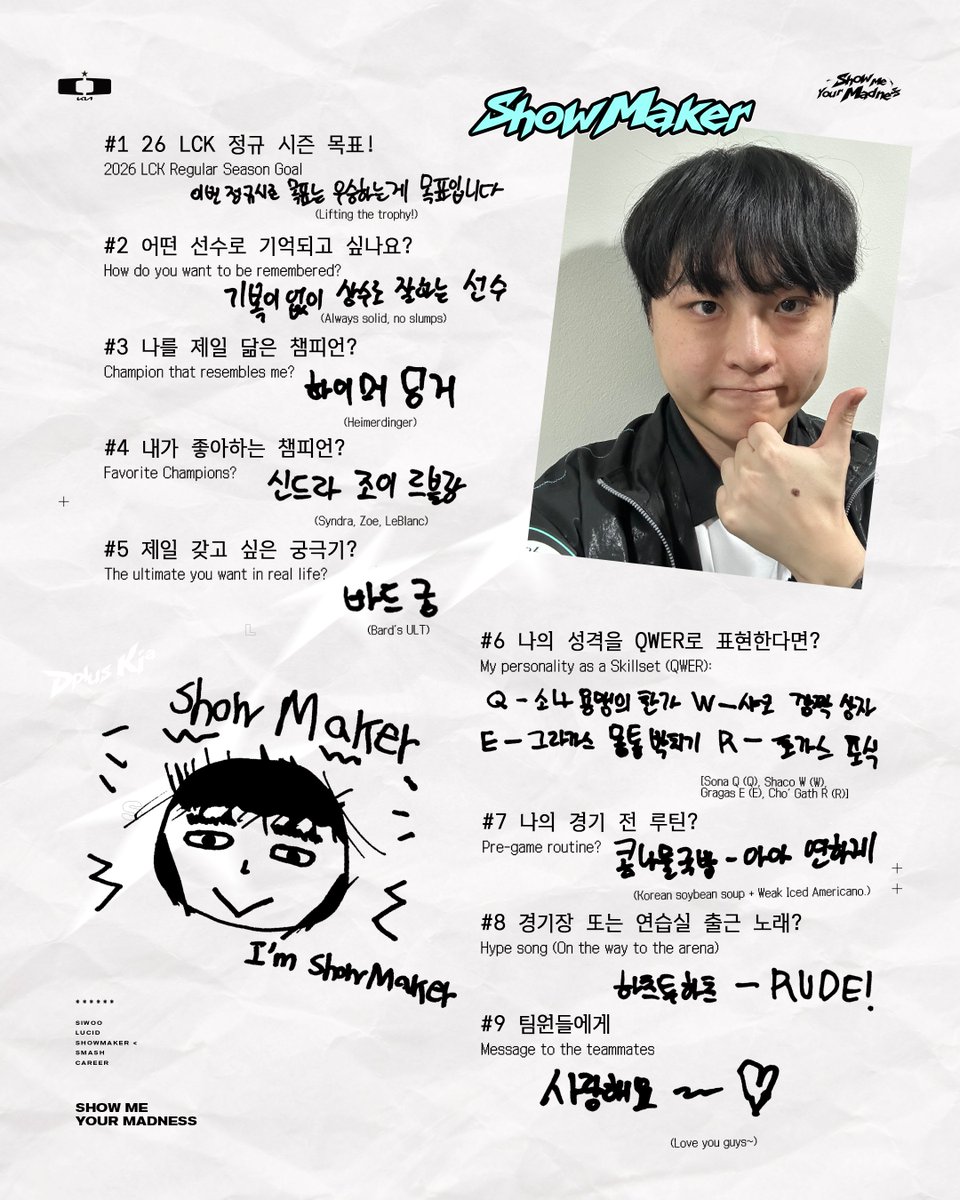 KIA
Show Me
Your Madness
ShowMaker
#1 26 LCK 정규 시즌 목표!
2026 LCK Regular Season Goal
이번 정규시즌 목표는 우승하는게 목표입니다
(Lifting the trophy!)
#2 어떤 선수로 기억되고 싶나요?
How do you want to be remembered?
기복이 없이 상수로 잘하는 선수
(Always solid, no slumps)
#3 나를 제일 닮은 챔피언?
Champion that resembles me?
하이머 딩거
(Heimerdinger)
#4 내가 좋아하는 챔피언?
Favorite Champions?
신드라 조이 르블랑
(Syndra, Zoe, LeBlanc)
#5 제일 갖고 싶은 궁극기?
The ultimate you want in real life?
바드 궁
(Bard's ULT)
L
Dplus Kia
Show Maker
S
I'm ShowMaker
******
SIWOO
LUCID
SHOWMAKER <
SMASH
CAREER
SHOW ME
YOUR MADNESS
#6 나의 성격을 QWER로 표현한다면?
My personality as a Skillset (QWER):
Q - 소나 용맹의 찬가 W - 샤코 깜짝 상자
E - 그라가스 몸통 박치기 R - 초가스 포식
[Sona Q (Q), Shaco W (W),
Gragas E (E), Cho' Gath R (R)]
#7 나의 경기 전 루틴?
Pre-game routine?
콩나물국밥 - 아아 연하게
(Korean soybean soup + Weak Iced Americano.)
#8 경기장 또는 연습실 출근 노래?
Hype song (On the way to the arena)
하츠투하츠 - RUDE!
#9 팀원들에게
Message to the teammates
사랑해요 ~
(Love you guys~)